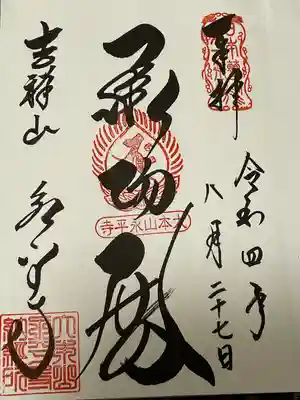 奉拝
令和四年
八月二十七日
承陽殿
大本山永平寺
吉祥山 永平寺